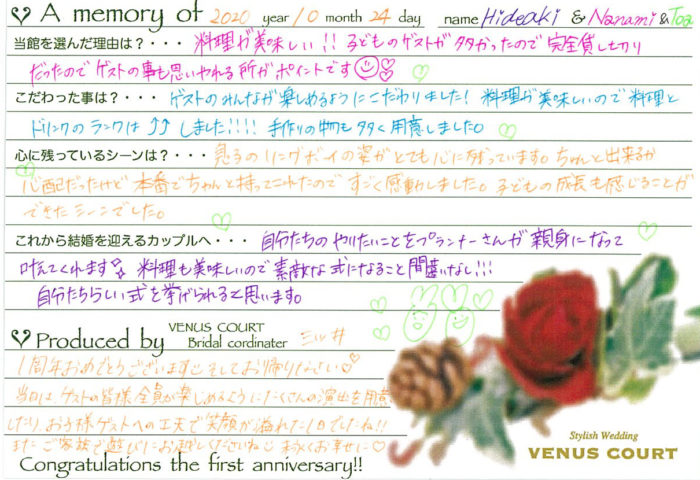 A memory of 2020 year 10 month 24 day name Hideaki & Nanami & Toa
当館を選んだ理由は?・・・ 料理が美味しい!! 子どものゲストが多かったので 完全貸し切り
だったので ゲストの事も思いやれる所がポイントです
こだわった事は?・・・ ゲストのみんなが楽しめるようにこだわりました! 料理が美味しいので料理と
ドリンクのランクは↑↑しました!!!! 手作りの物も多く用意しました。
心に残っているシーンは?・・・ 息子のリングボーイの姿がとても心に残っています。ちゃんと出来るか
心配だったけど 本番でちゃんと持ってこれたので すごく感動しました。子どもの成長も感じることが
できたシーンでした。
これから結婚を迎えるカップルへ・・・ 自分たちのやりたいことをプランナーさんが 親身になって
叶えてくれます 料理も美味しいので素敵な式になること間違いなし!!!
自分たちらしい式を挙げられると思います。
Produced by VENUS COURT Bridal cordinater 三ツ井
1周年おめでとうございます そしてお帰りなさい♡
当日はゲストの皆様全員が楽しめるようにたくさんの演出を用意
したり、お子様ゲストへの工夫で笑顔が溢れた1日でしたね!!
また ご家族で遊びにお越しくださいね 末永くお幸せに♡
Congratulations the first anniversary!!
Stylish Wedding
VENUS COURT